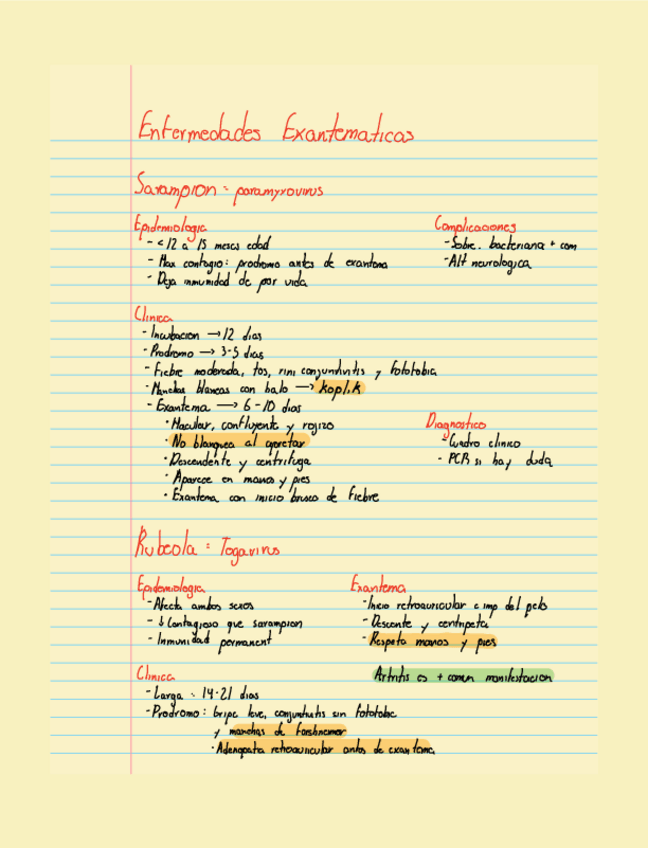 Enfermedades Exantematicas
Sarampion = paramyxovirus
Epidemiologia
- < 12 a 15 meses edad
- Max contagio: prodromo antes de exantema
- Deja inmunidad de por vida
Complicaciones
- Sobre. bacteriana + com
- Alt neurologica
Clinica
- Incubacion → 12 dias
- Prodromo → 3-5 dias
- Fiebre moderada, tos, rini conjuntivitis y fotofobia
- Manchas blancas con halo → koplik
- Exantema → 6-10 dias
· Macular, confluyente y rojizo
· No blanquea al apretar
· Descendente y centrifuga
· Aparece en manos y pies
· Exantema con inicio brusco de fiebre
Diagnostico
- Cuadro clinico
- PCR si hay duda
Rubeola = Togavirus
Epidemiologia
- Afecta ambos sexos
- ↓ Contagioso que sarampion
- Inmunidad permanent
Exantema
- Inicio retroauricular e imp del pelo
- Descente y centripeta
- Respeta manos y pies
Artritis es + comun manifestacion
Clinica
- Larga 14-21 dias
- Prodromo: gripe leve, conjuntivitis sin fotofobia
y manchas de
· Adenopatia retroauricular antes de exantema